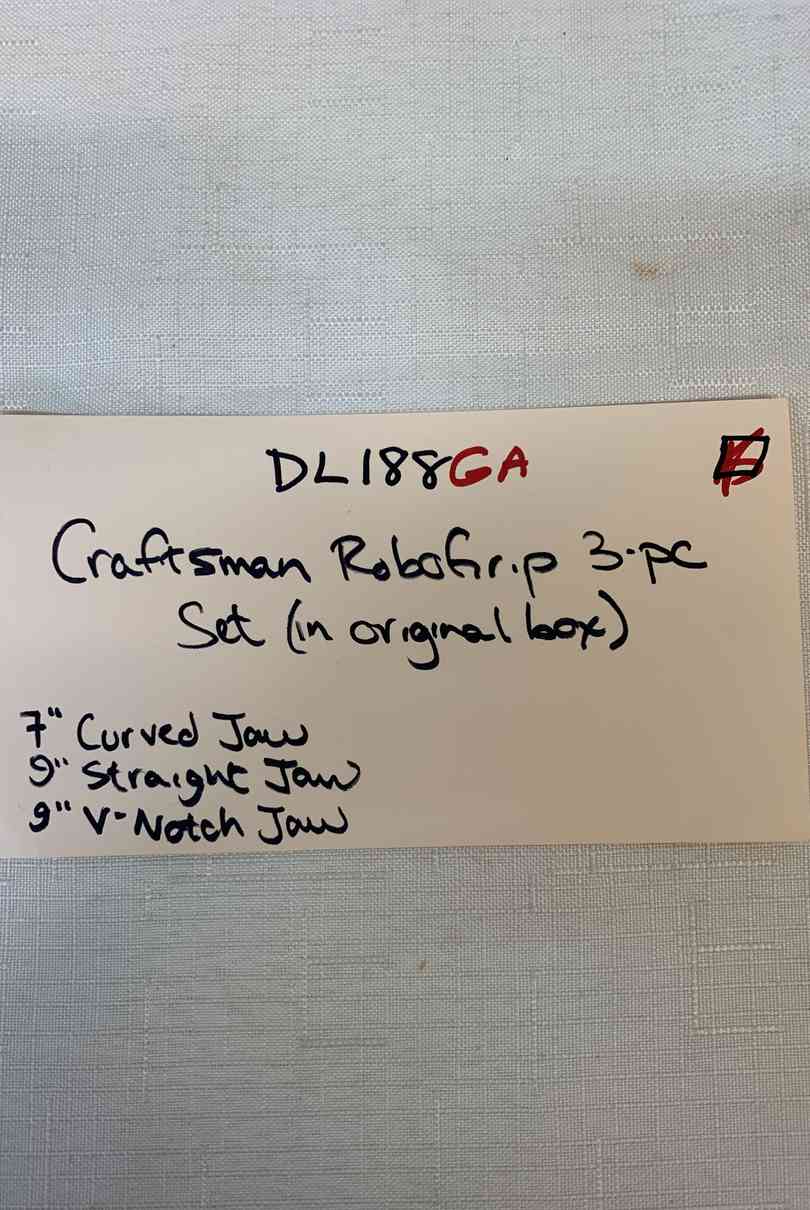 DL188GA
Craftsman RoboGrip 3-pc
Set (in original box)
7" Curved Jaw
9" Straight Jaw
9" V-Notch Jaw